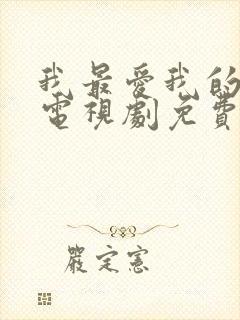 我最愛我的
電視劇免費
嚴定憲